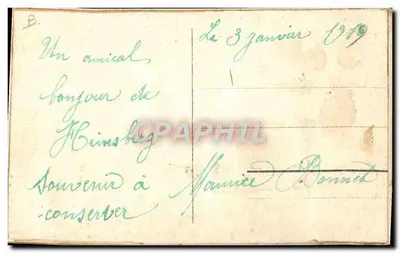 B.
Un amical
bonjour de
Heinsberg
Souvenir à
conserver
Le 3 janvier 1919
Maurice Bonnet
CPAPHIL